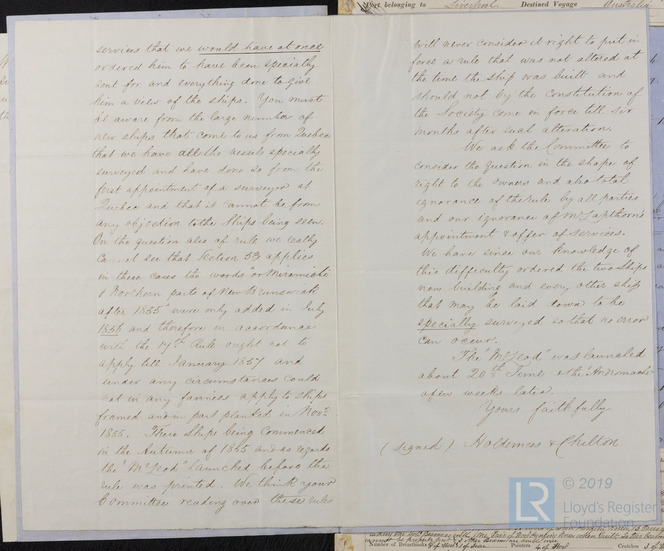 Port belonging to Liverpool Destined Voyage Australia
services that we would have at once
ordered him to have been specially
sent for and everything done to give
him a view of the ships. You must
be aware from the large number of
new ships that come to us from Quebec
that we have all the vessels specially
surveyed and have done so from the
first appointment of a surveyor at
Quebec and that it cannot be from
any objection to the Ships being seen.
On the question also of rule we really
cannot see that Section 53 applies
in these cases the words or Miramichi
& Northern parts of New Brunswick
after 1855 were only added in July
1856 and therefore in accordance
with the 17th Rule ought not to
apply till January 1857 and
under any circumstances could
not in any fairness apply to Ships
framed and in part planked in Novr
1855. These Ships being commenced
in the Autumn of 1855 and as regards
the "McLeod" launched before the
rule was printed. We think your
Committee reading over these rules
will never consider it right to put in
force a rule that was not altered at
the time the ship was built and
should not by the Constitution of
the Society come in force till six
months after such alteration.
We ask the Committee to
consider the question in the shape of
right to the owners and also total
ignorance of the rule by all parties
and our ignorance of Mr Lapthorn's
appointment & offer of services.
We have since our knowledge of
this difficulty ordered the two Ships
now building and every other ship
that may be laid down to be
specially surveyed so that no error
can occur.
The "McLeod" was launched
about 20th June & the Andromache
a few weeks later.
Yours faithfully
(signed) Holderness & Chilton
© 2019
LR
Lloyd's Register
Foundation